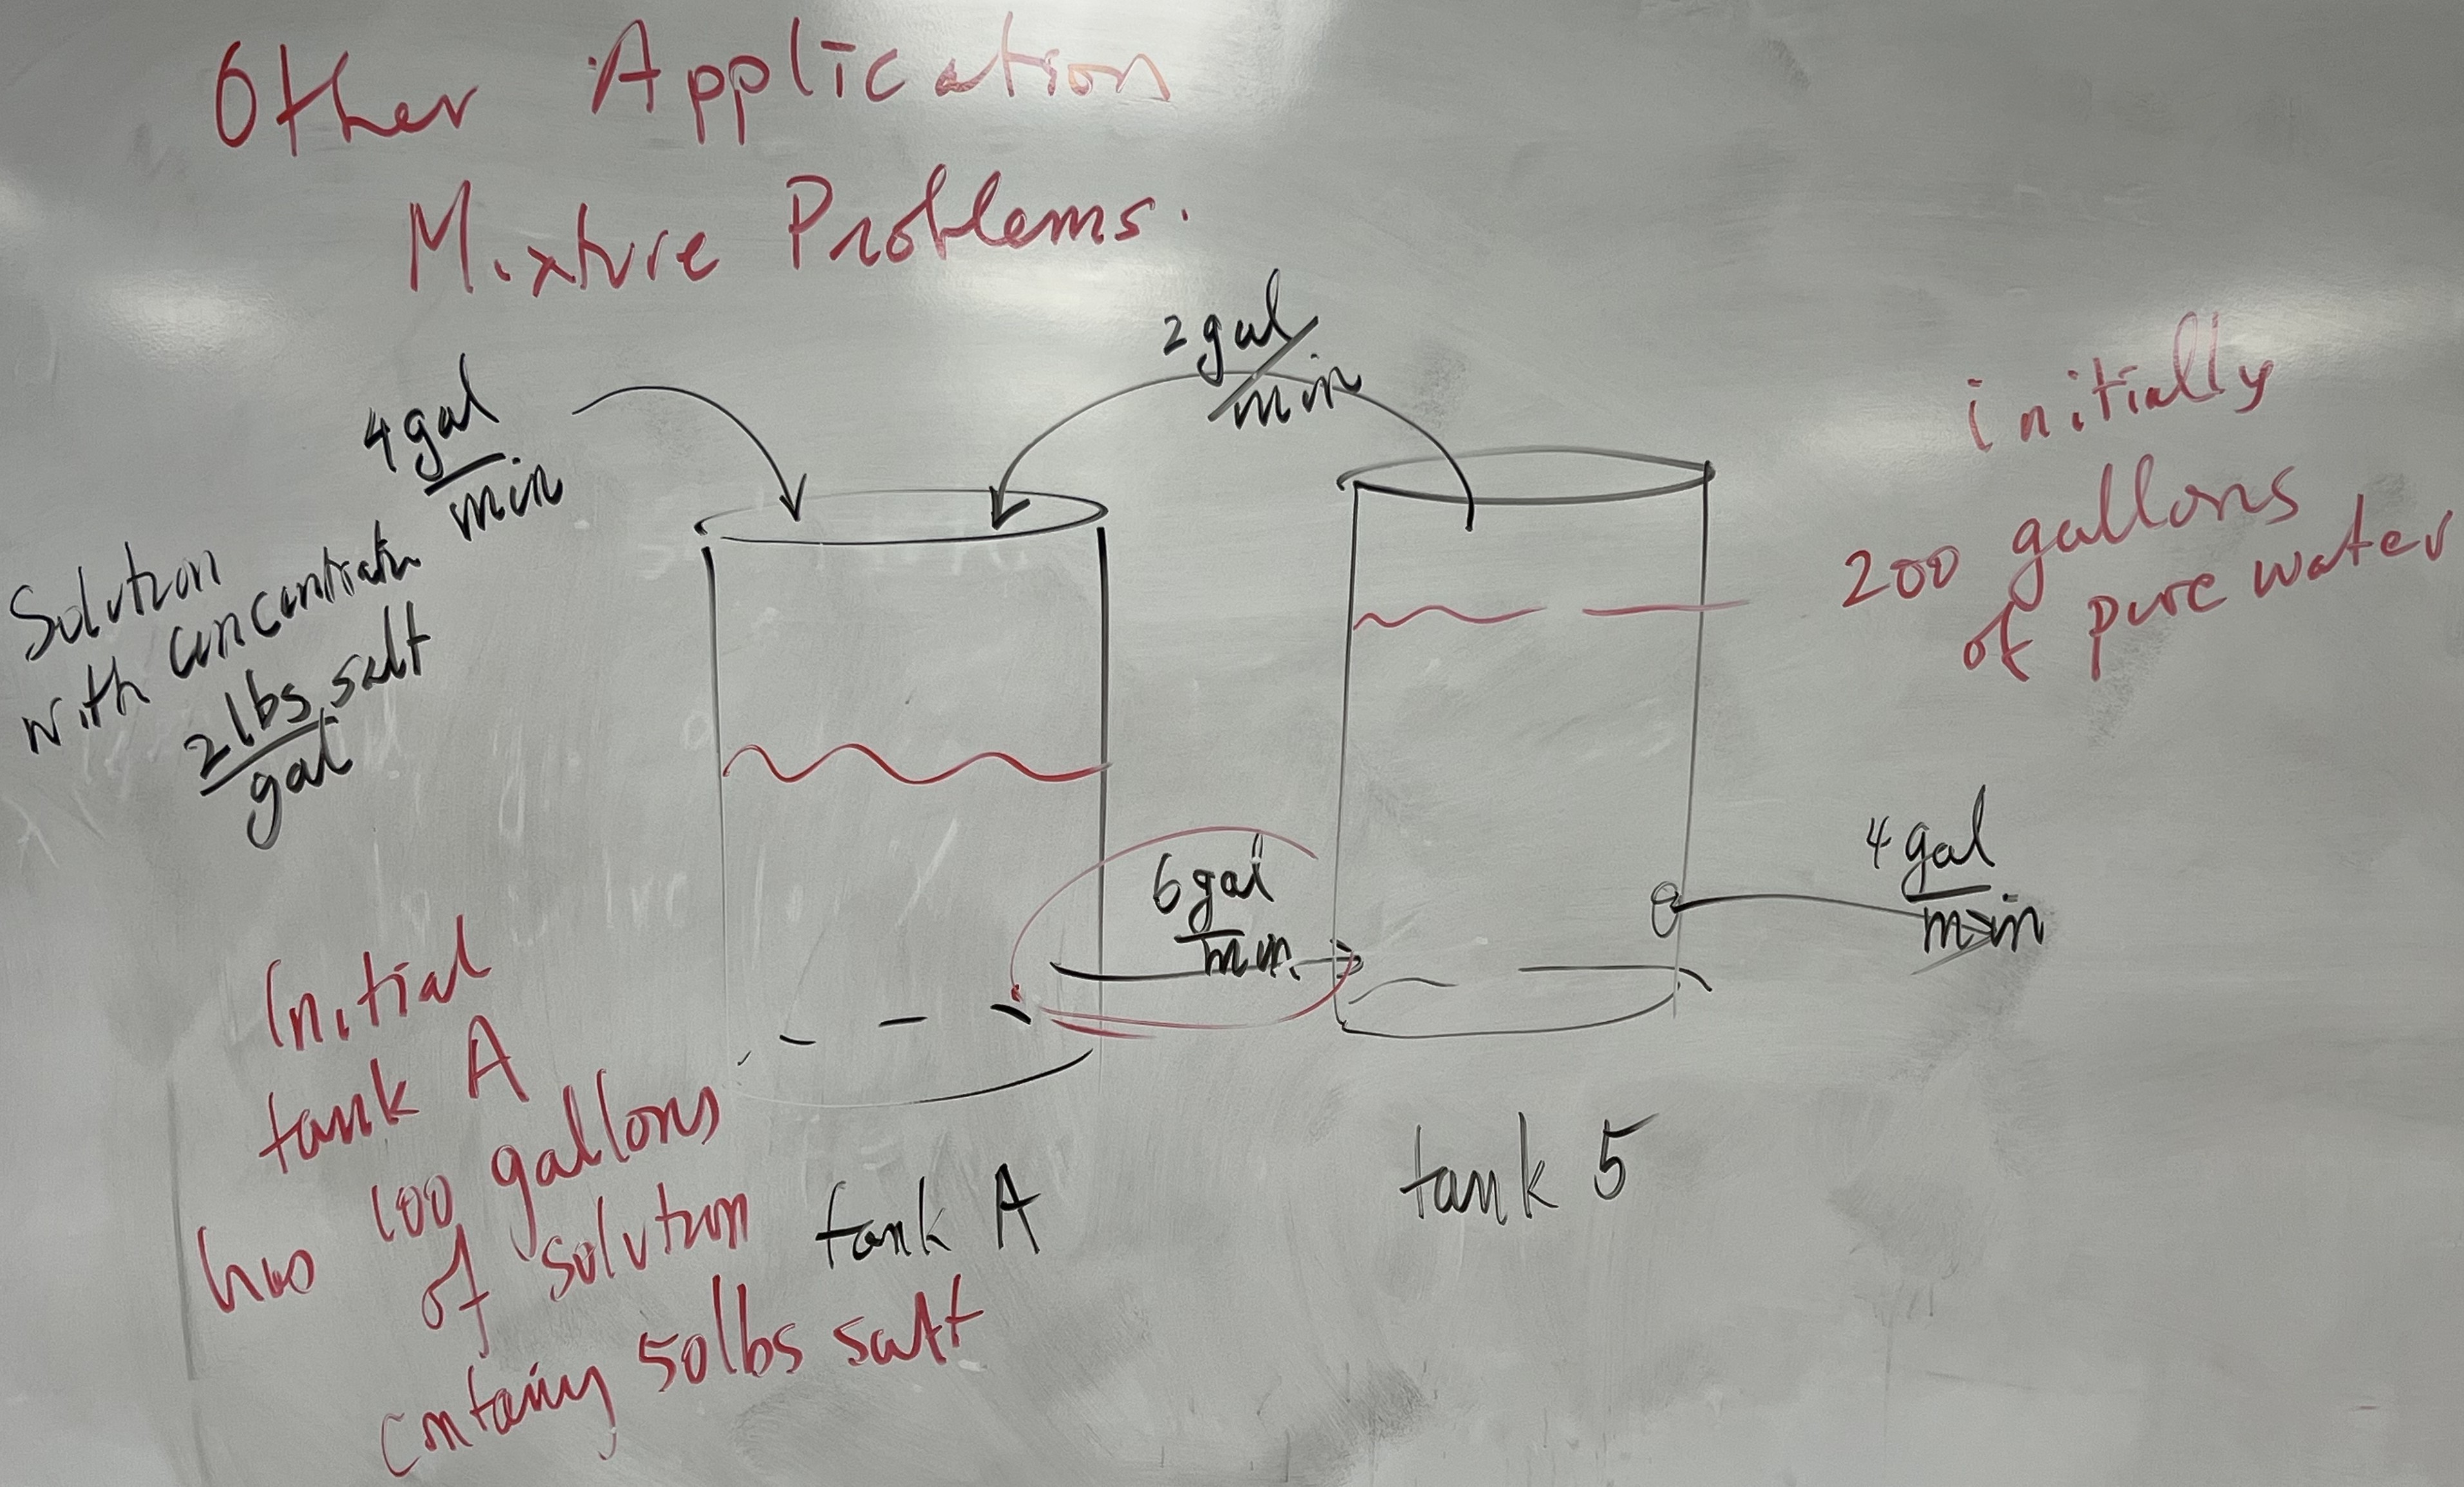 Other Application
Mixture Problems.
4 gal
min
Solution
with concentration
2 lbs salt
gal
2 gal/
min
initially
200 gallons
of pure water
6 gal
min.
4 gal
min
Initial
tank A
has 100 gallons
of solution
containing 50 lbs salt
tank A
tank 5